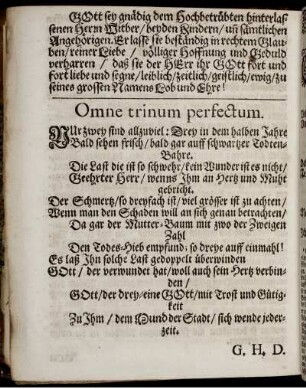 GOtt sey gnädig dem Hochbetrübten hinterlas-
senen Herrn Witber/ beyden Kindern/ uñ sämtlichen
Angehörigen. Er lasse sie beständig in rechtem Glau-
ben/ reiner Liebe / völliger Hoffnung und Gedult
verharren / daß sie der HErr ihr GOtt fort und
fort liebe und segne/ leiblich/ zeitlich/ geistlich/ ewig/ zu
seines grossen Namens Lob und Ehre!
Omne trinum perfectum.
NUr zwey sind allzuviel: Drey in dem halben Jahre
Bald sehen frisch/ bald gar auff schwartzer Todten-
Bahre.
Die Last die ist so schwehr/ kein Wunder ist es nicht/
Geehrter Herr/ wenns Ihm an Hertz und Muht
gebricht.
Der Schmertz/ so dreyfach ist/ viel grösser ist zu achten/
Wenn man den Schaden will an sich genau betrachten/
Da gar der Mutter-Baum mit zwo der Zweigen
Zahl
Den Todes-Hieb empfund: so dreye auff einmahl!
Es laß Ihn solche Last gedoppelt überwinden
GOtt/ der verwundet hat/ woll auch sein Hertz verbin-
den/
GOtt/ der drey/ eine GOtt/ mit Trost und Gütig-
keit
Zu Ihm / dem Mund der Stadt/ sich wende jeder-
zeit.
G. H. D.